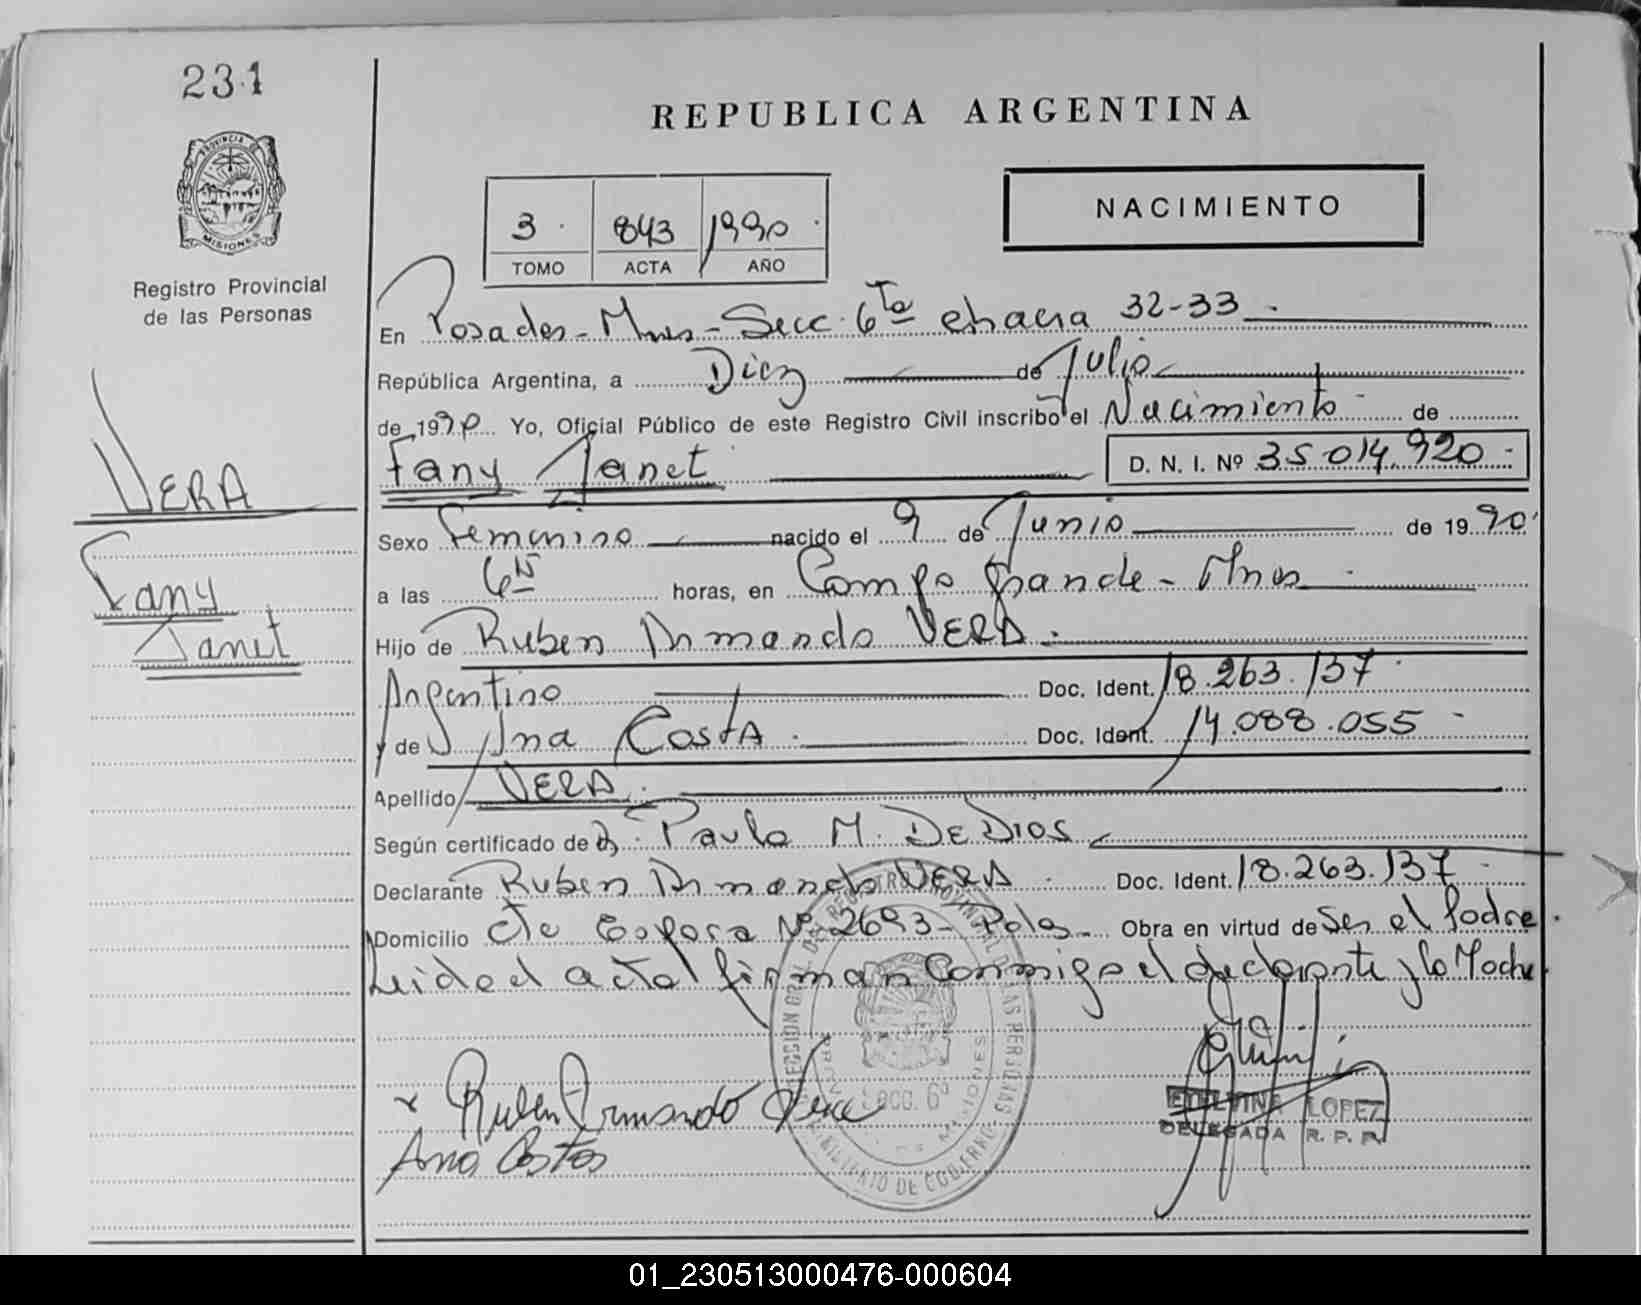 231
PROVINCIA DE
MISIONES
Registro Provincial
de las Personas
VERA
Fany
Janet
REPUBLICA ARGENTINA
NACIMIENTO
3 843 1990
TOMO ACTA AÑO
En Posadas - Mnes - Secc. 6ta chacra 32-33
República Argentina, a Diez de Julio
de 1990 Yo, Oficial Público de este Registro Civil inscribo el Nacimiento de
Fany Janet D. N. I. Nº 35.014.920
Sexo Femenino nacido el 9 de Junio de 1990
a las 6 horas, en Campo Grande - Mnes
Hijo de Ruben Armando VERA
Argentino Doc. Ident. 18.263.137
y de Ana Costa Doc. Ident. 14.088.055
Apellido VERA
Según certificado de Paulo M. De Dios
Declarante Ruben Armando VERA Doc. Ident. 18.263.137
Domicilio Cte Espora Nº 2693 - Pdas Obra en virtud de Ser el Padre
Leida el acta firman conmigo el declarante y la Madre
Secc. 6ª
MINISTERIO DE GOBIERNO
Ruben Armando Vera
Ana Costa
ETELVINA LOPEZ
DELEGADA R. P. P.
01_230513000476-000604